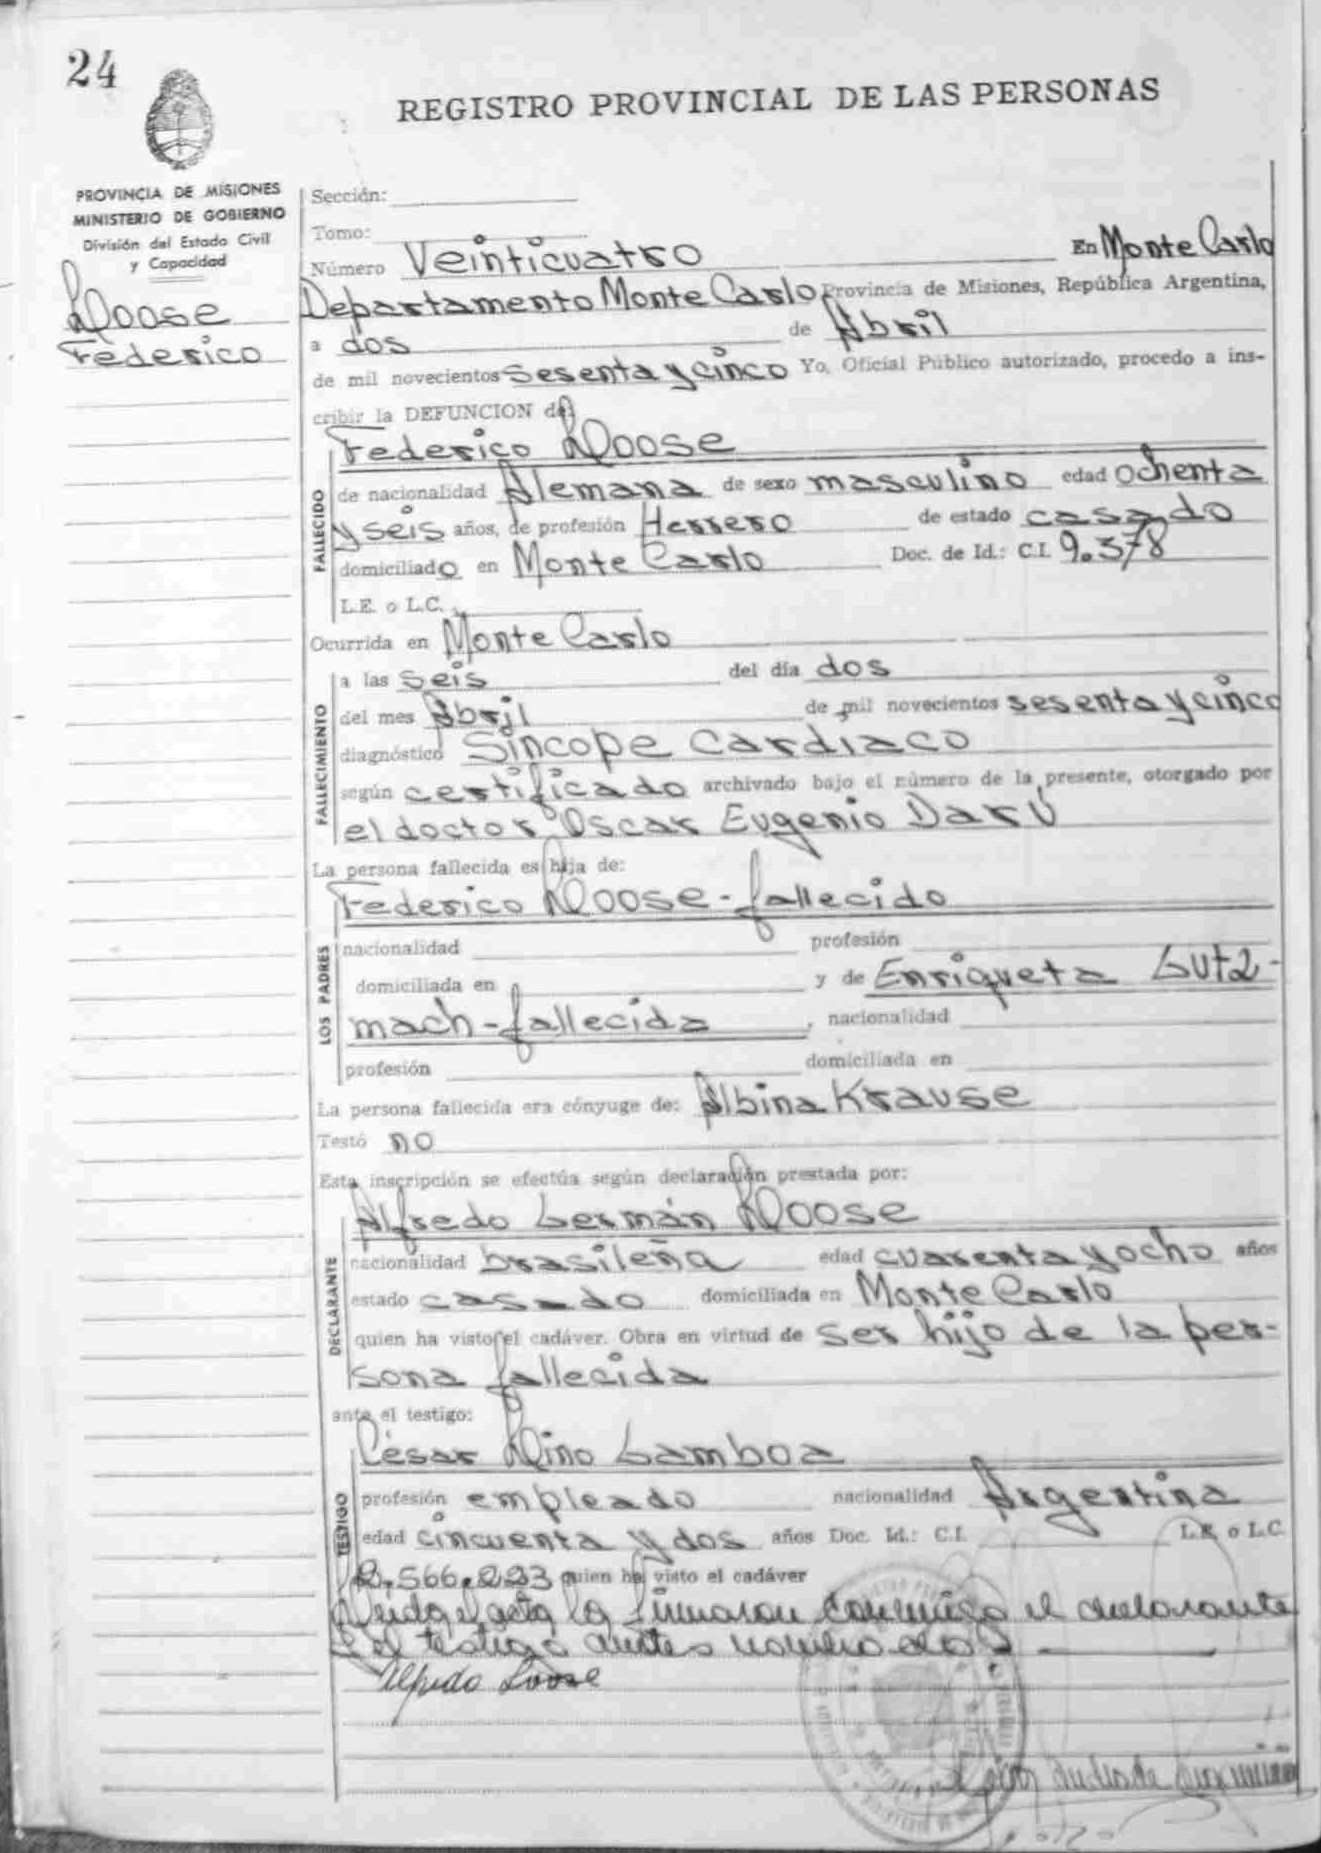 24
REGISTRO PROVINCIAL DE LAS PERSONAS
PROVINCIA DE MISIONES
MINISTERIO DE GOBIERNO
División del Estado Civil
y Capacidad
Doose
Federico
Sección:
Tomo:
Número Veinticuatro En Monte Carlo
Departamento Monte Carlo Provincia de Misiones, República Argentina,
a dos de Abril
de mil novecientos sesenta y cinco Yo, Oficial Público autorizado, procedo a ins-
cribir la DEFUNCION del
Federico Doose
FALLECIDO
de nacionalidad Alemana de sexo masculino edad ochenta
y seis años, de profesión Herrero de estado casado
domiciliado en Monte Carlo Doc. de Id.: C.I. 9.378
L.E. o L.C.
Ocurrida en Monte Carlo
FALLECIMIENTO
a las seis del día dos
del mes Abril de mil novecientos sesenta y cinco
diagnóstico Síncope Cardiaco
según certificado archivado bajo el número de la presente, otorgado por
el doctor Oscar Eugenio Darú
La persona fallecida es hija de:
Federico Doose - fallecido
LOS PADRES
nacionalidad profesión
domiciliada en y de Enriqueta Gutz-
mach - fallecida, nacionalidad
profesión domiciliada en
La persona fallecida era cónyuge de: Albina Krause
Testó no
Esta inscripción se efectúa según declaración prestada por:
Alfredo Germán Doose
DECLARANTE
nacionalidad brasileña edad cuarenta y ocho años
estado casado domiciliada en Monte Carlo
quien ha visto el cadáver. Obra en virtud de ser hijo de la per-
sona fallecida
ante el testigo:
César Dino Gamboa
TESTIGO
profesión empleado nacionalidad Argentina
edad cincuenta y dos años Doc. Id.: C.I. L.E. o L.C.
2.566.223 quien ha visto el cadáver
Leida el acta la firmaron conmigo el declarante
y el testigo antes nombrados
Alfredo Doose